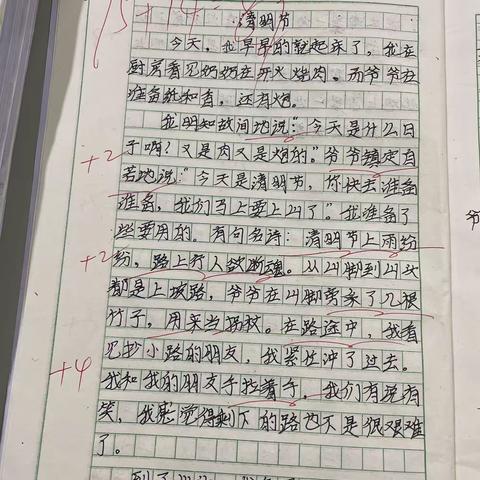 清明节
今天，我早早的就起床了，我在
厨房看见奶奶在开火烧肉。而爷爷在
准备纸和香，还有炮。
我明知故问地说：“今天是什么日
子啊？又是肉又是炮的。”爷爷镇定自
若地说：“今天是清明节，你快去准备
准备，我们马上要上山了”。我准备了
些要用的。有句名诗：清明节上雨纷
纷，路上行人欲断魂。从山脚到山头
都是上坡路，爷爷在山脚 来了几根
竹子，用来当拐杖。在路途中，我看
见抄小路的朋友，我 冲了过去。
我和我的朋友手拉着手，我们有说有
笑，我感觉得剩下的路也不是很艰难
了。
+2
+2
+4